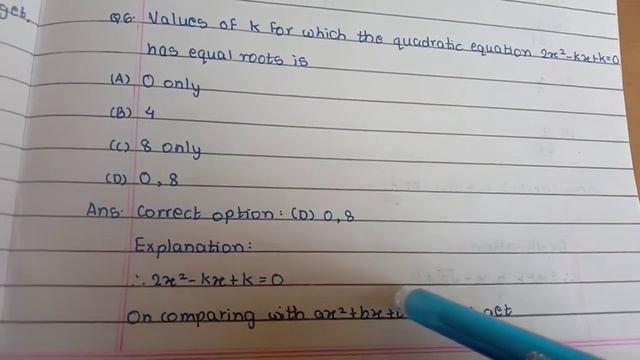 get.
Q6. Values of k for which the quadratic equation 2x²-kx+k=0
has equal roots is
(A) 0 only
(B) 4
(C) 8 only
(D) 0, 8
Ans. Correct option: (D) 0, 8
Explanation:
∴ 2x²-kx+k=0
On comparing with ax²+bx+ get